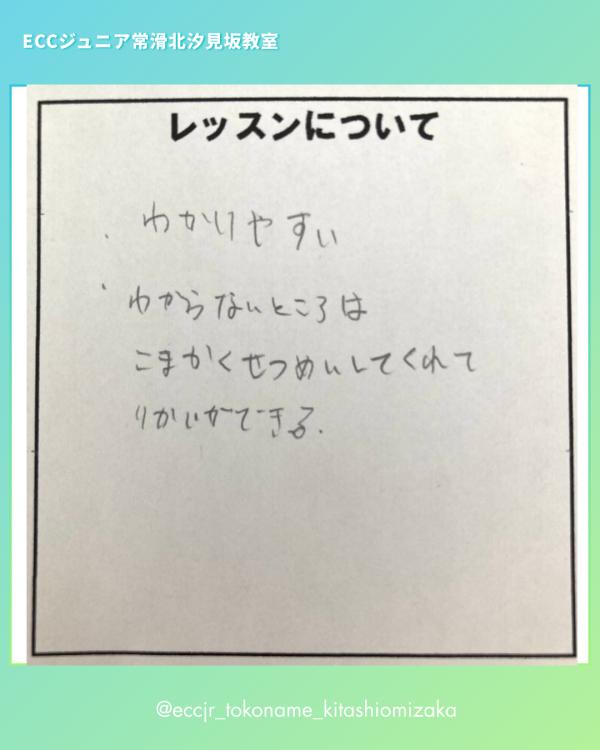 ECCジュニア常滑北汐見坂教室
レッスンについて
・わかりやすい
・わからないところは
こまかくせつめいしてくれて
りかいができる.
@eccjr_tokoname_kitashiomizaka